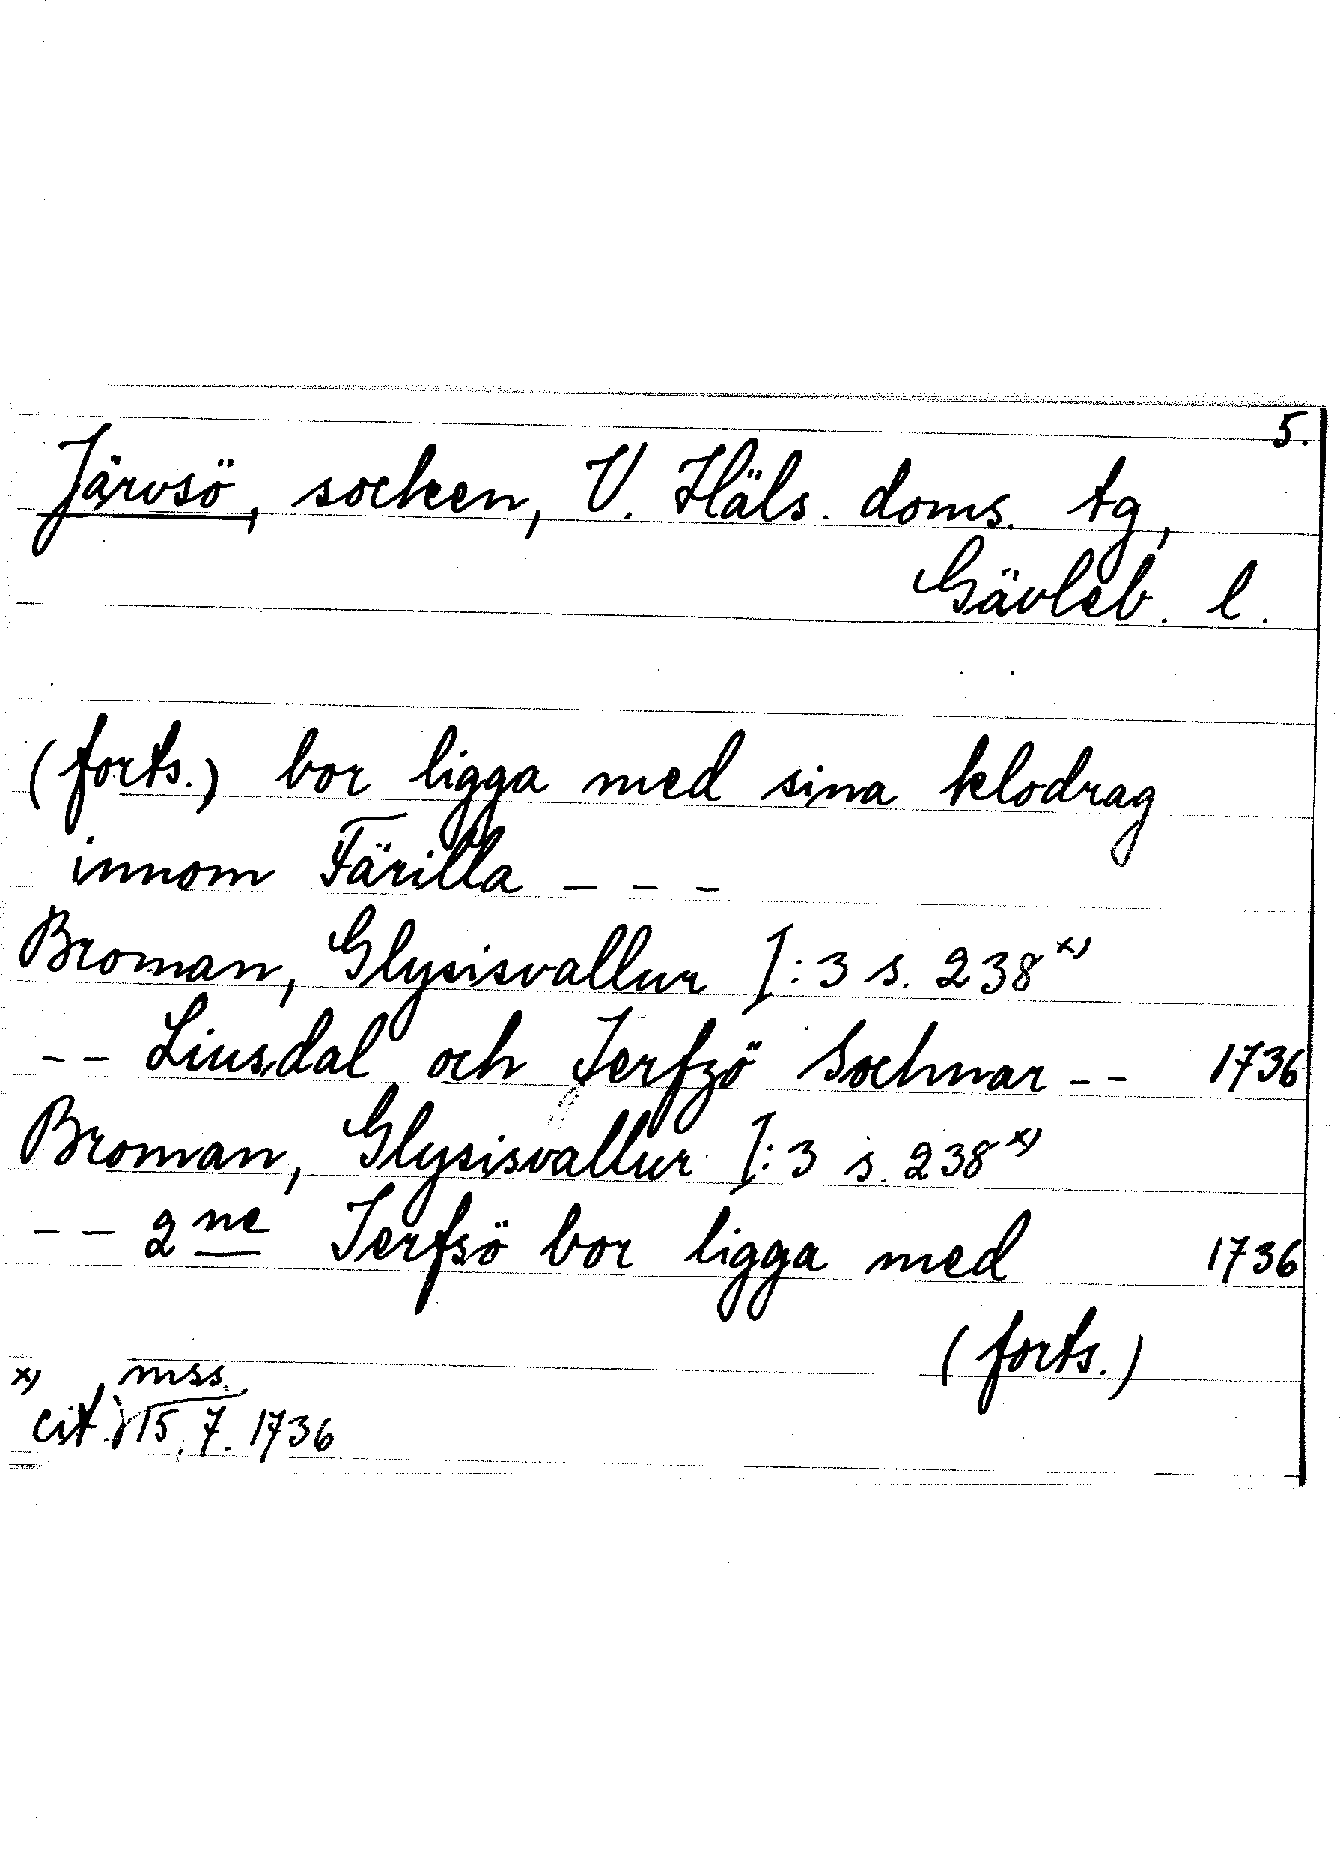 5.
Järvsö, socken, V. Häls. doms. tg,
Gävleb. l.
(forts.) bor ligga med sina klodrag
innom Färilla - - -
Broman, Glysisvallur I:3 s. 238 x)
-- Liusdal och Jerfzö Sochnar -- 1736
Broman, Glysisvallur I:3 s. 238 x)
-- 2ne Jerfsö bor ligga med 1736
(forts.)
x) mss.
cit. 15.7.1736